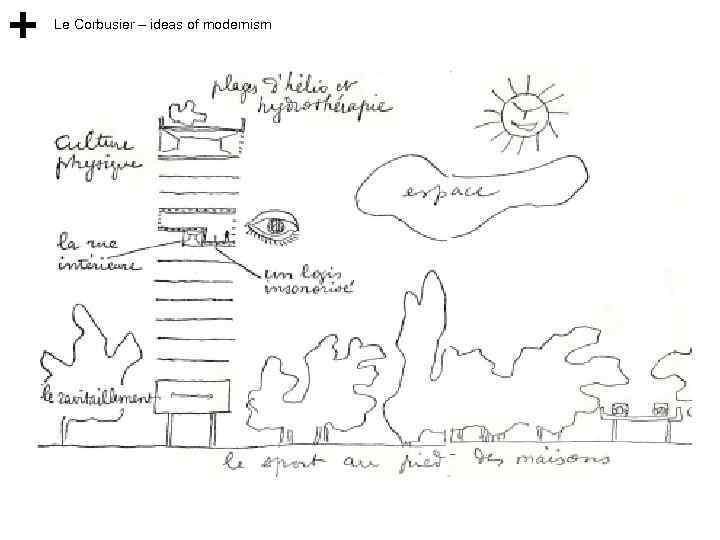 Le Corbusier – ideas of modernism
plages d'hélio et
hydrothérapie
culture
physique
espace
la rue
intérieure
un logis
insonorisé
le ravitaillement
le sport au pied des maisons